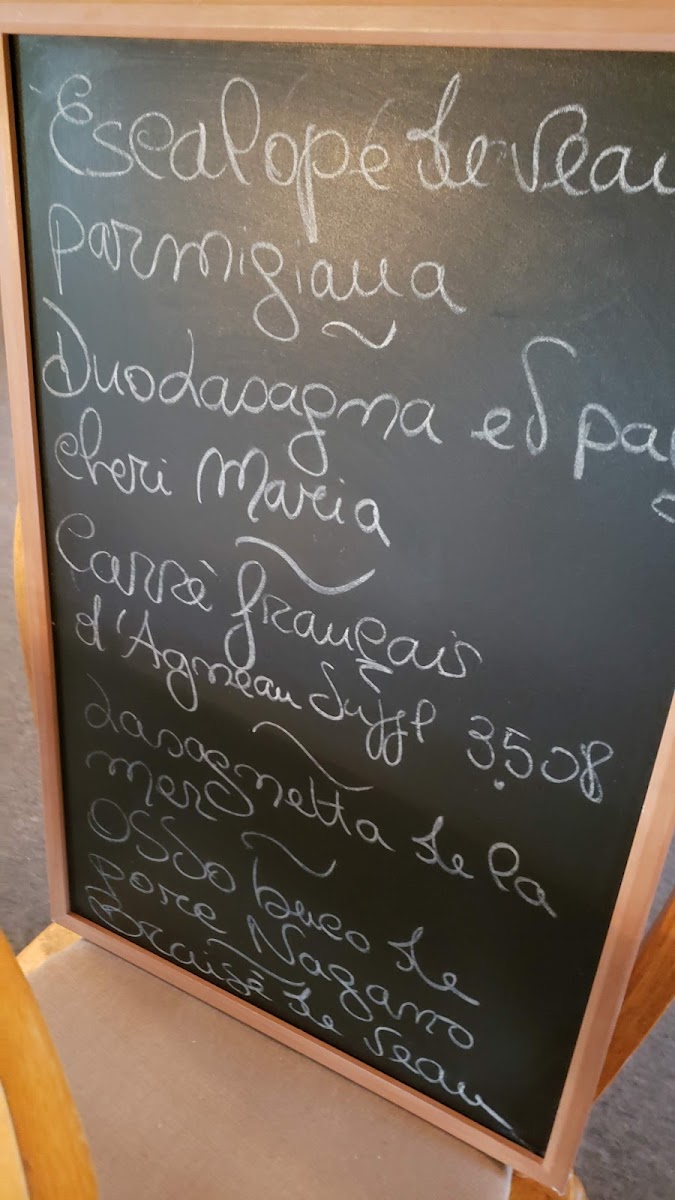 Escalope de veau
parmigiana
Duo Lasagna et
cheri Maria
Carrè français
d'Agneau Suppl 3.50$
Lasagnetta de la
mer
OSSo buco de
porc Nagano
Braisé de veau